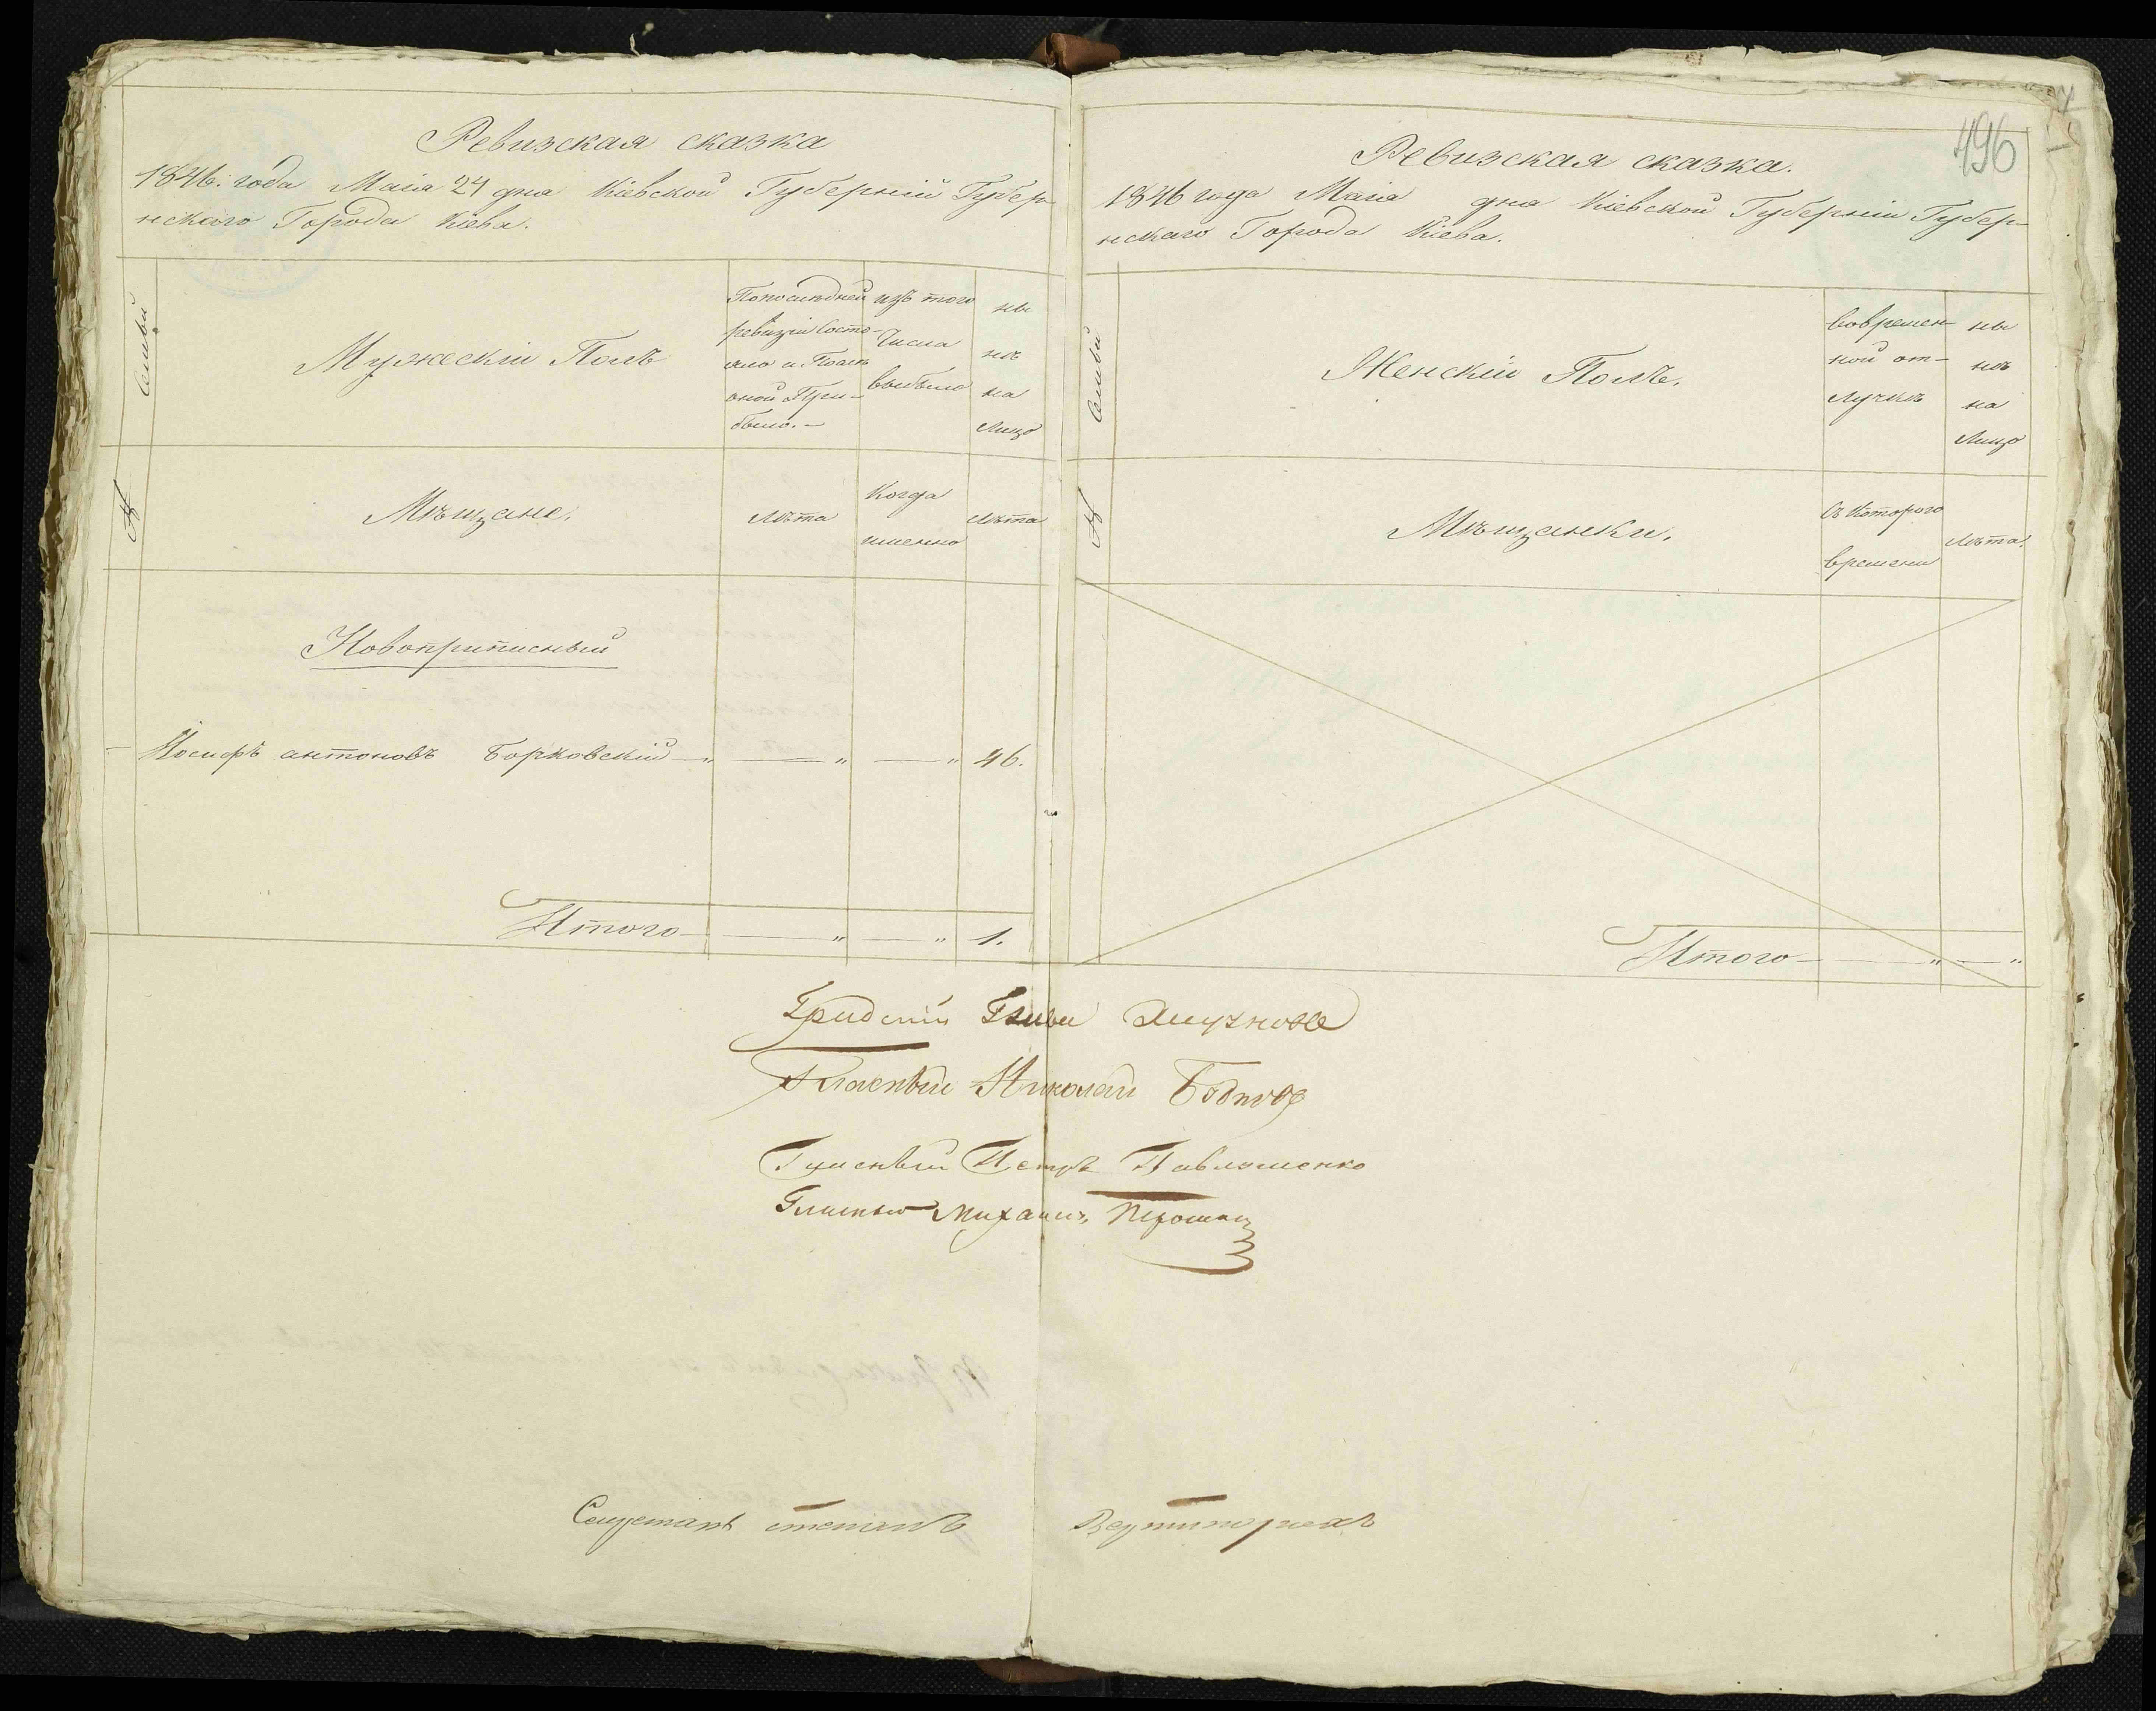 Ревизская сказка
1846. года Маія 24 дня Кіевской Губерніи Губер-
нскаго Города Кіева.
Семьи
Мужескій Полъ
По последней
ревизіи Состо-
яло и Посля
оной При-
было. –
изъ того
Числа
выбыло
ны
нѣ
на
Лицо
№
Мѣщане.
Лѣта
Когда
именно
Лѣта
Новоприписный
Иосифъ антоновъ Борковскій — " — " — " 46.
Итого — " — " 1.
496
Ревизская сказка.
1846 года Маія дня Кіевской Губерніи Губер-
нскаго Города Кіева.
Семьи
Женскій Полъ.
Вовремен-
ной от-
лучкѣ
ны
нѣ
на
Лицо
№
Мѣщанки.
Съ Которого
времени
Лѣта.
Итого — " — "
Градскій Глава
Гласный Николай
Гласный Петръ Павлошенко
Гласный Михаилъ
степанъ